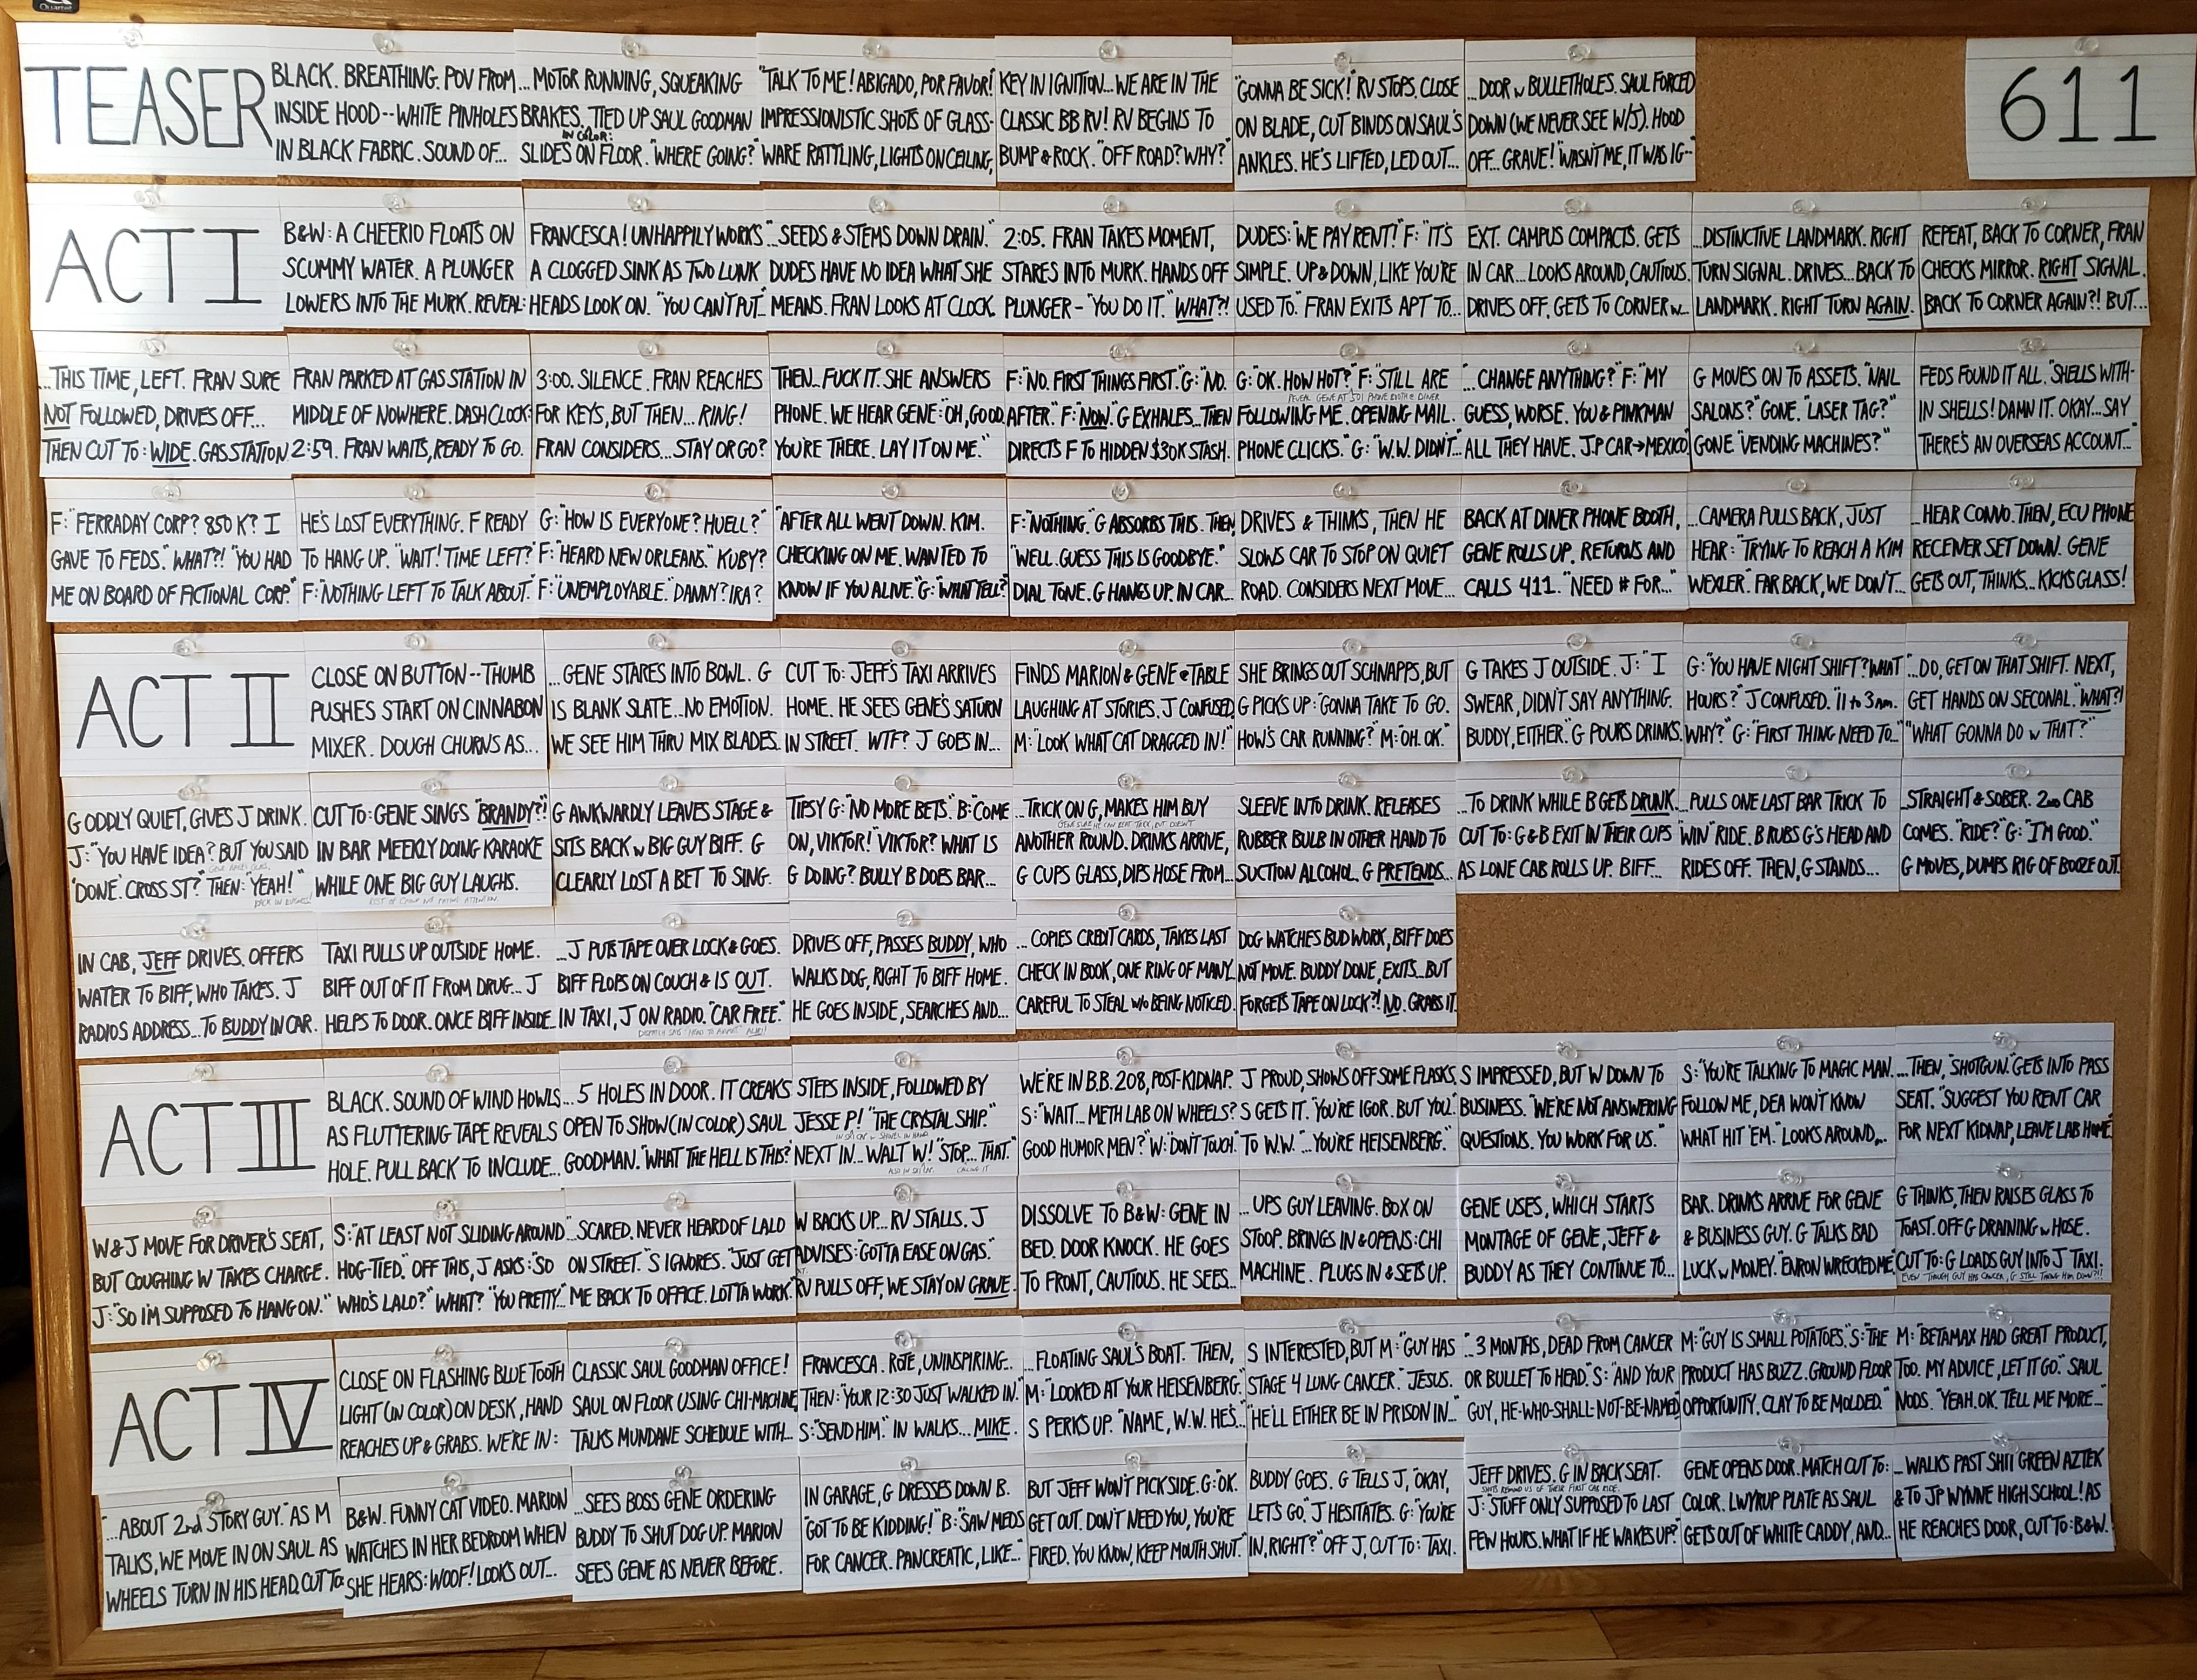 Quartet
TEASER
BLACK. BREATHING. POV FROM
INSIDE HOOD -- WHITE PINHOLES
IN BLACK FABRIC. SOUND OF...
...MOTOR RUNNING, SQUEAKING
BRAKES. TIED UP SAUL GOODMAN
IN COLOR:
SLIDES ON FLOOR. "WHERE GOING?"
"TALK TO ME! ABIGADO, POR FAVOR!
IMPRESSIONISTIC SHOTS OF GLASS-
WARE RATTLING, LIGHTS ON CEILING,
KEY IN IGNITION... WE ARE IN THE
CLASSIC BB RV! RV BEGINS TO
BUMP & ROCK. "OFF ROAD? WHY?"
"GONNA BE SICK! RV STOPS. CLOSE
ON BLADE, CUT BINDS ON SAUL'S
ANKLES. HE'S LIFTED, LED OUT...
...DOOR w BULLETHOLES. SAUL FORCED
DOWN (WE NEVER SEE W/J). HOOD
OFF... GRAVE! "WASN'T ME, IT WAS IG--"
611
ACT I
B&W: A CHEERIO FLOATS ON
SCUMMY WATER. A PLUNGER
LOWERS INTO THE MURK. REVEAL:
FRANCESCA! UNHAPPILY WORKS
A CLOGGED SINK AS TWO LUNK
HEADS LOOK ON. "YOU CAN'T PUT...
"...SEEDS & STEMS DOWN DRAIN."
DUDES HAVE NO IDEA WHAT SHE
MEANS. FRAN LOOKS AT CLOCK.
2:05. FRAN TAKES MOMENT,
STARES INTO MURK. HANDS OFF
PLUNGER - "YOU DO IT." "WHAT?!
DUDES: "WE PAY RENT!" F: "IT'S
SIMPLE. UP & DOWN, LIKE YOU'RE
USED TO." FRAN EXITS APT TO...
EXT. CAMPUS COMPACTS. GETS
IN CAR... LOOKS AROUND, CAUTIOUS.
DRIVES OFF, GETS TO CORNER w...
...DISTINCTIVE LANDMARK. RIGHT
TURN SIGNAL. DRIVES... BACK TO
LANDMARK. RIGHT TURN AGAIN.
REPEAT, BACK TO CORNER, FRAN
CHECKS MIRROR. RIGHT SIGNAL.
BACK TO CORNER AGAIN?! BUT...
...THIS TIME, LEFT. FRAN SURE
NOT FOLLOWED, DRIVES OFF...
THEN CUT TO: WIDE. GAS STATION
FRAN PARKED AT GAS STATION IN
MIDDLE OF NOWHERE. DASH CLOCK:
2:59. FRAN WAITS, READY TO GO.
3:00. SILENCE. FRAN REACHES
FOR KEYS, BUT THEN... RING!
FRAN CONSIDERS... STAY OR GO?
THEN... FUCK IT. SHE ANSWERS
PHONE. WE HEAR GENE: "OH, GOOD.
YOU'RE THERE. LAY IT ON ME."
F: "NO. FIRST THINGS FIRST." G: "NO.
AFTER." F: "NOW." G EXHALES... THEN
DIRECTS F TO HIDDEN $30K STASH.
G: "OK. HOW HOT?" F: "STILL ARE
REVEAL GENE AT SD1 PHONE BOOTH @ DINER
FOLLOWING ME. OPENING MAIL.
PHONE CLICKS." G: "W.W. DIDN'T...
"...CHANGE ANYTHING?" F: "MY
GUESS, WORSE. YOU & PINKMAN
ALL THEY HAVE. J.P CAR→MEXICO
G MOVES ON TO ASSETS. "NAIL
SALONS?" GONE. "LASER TAG?"
GONE. "VENDING MACHINES?"
FEDS FOUND IT ALL. "SHELLS WITH-
IN SHELLS! DAMN IT. OKAY... SAY
THERE'S AN OVERSEAS ACCOUNT..."
F: "FERRADAY CORP? 850 K? I
GAVE TO FEDS." WHAT?! "YOU HAD
ME ON BOARD OF FICTIONAL CORP."
HE'S LOST EVERYTHING. F READY
TO HANG UP. "WAIT! TIME LEFT?"
F: "NOTHING LEFT TO TALK ABOUT."
G: "HOW IS EVERYONE? HUELL?"
F: "HEARD NEW ORLEANS." KUBY?
F: "UNEMPLOYABLE." DANNY? IRA?
"AFTER ALL WENT DOWN. KIM.
CHECKING ON ME. WANTED TO
KNOW IF YOU ALIVE." G: "WHAT TELL?"
F: "NOTHING." G ABSORBS THIS. THEN
"WELL. GUESS THIS IS GOODBYE."
DIAL TONE. G HANGS UP. IN CAR...
DRIVES & THINKS, THEN HE
SLOWS CAR TO STOP ON QUIET
ROAD. CONSIDERS NEXT MOVE...
BACK AT DINER PHONE BOOTH,
GENE ROLLS UP. RETURNS AND
CALLS 411. "NEED # FOR..."
...CAMERA PULLS BACK, JUST
HEAR: "TRYING TO REACH A KIM
WEXLER." FAR BACK, WE DON'T...
...HEAR CONVO. THEN, ECU PHONE
RECENER SET DOWN. GENE
GETS OUT, THINKS... KICKS GLASS!
ACT II
CLOSE ON BUTTON -- THUMB
PUSHES START ON CINNABON
MIXER. DOUGH CHURNS AS...
...GENE STARES INTO BOWL. G
IS BLANK SLATE... NO EMOTION.
WE SEE HIM THRU MIX BLADES.
CUT TO: JEFF'S TAXI ARRIVES
HOME. HE SEES GENE'S SATURN
IN STREET. WTF? J GOES IN...
FINDS MARION & GENE @ TABLE
LAUGHING AT STORIES. J CONFUSED.
M: "LOOK WHAT CAT DRAGGED IN!"
SHE BRINGS OUT SCHNAPPS, BUT
G PICKS UP: "GONNA TAKE TO GO.
HOW'S CAR RUNNING?" M: "OH. OK."
G TAKES J OUTSIDE. J: "I
SWEAR, DIDN'T SAY ANYTHING.
BUDDY, EITHER." G POURS DRINKS.
G: "YOU HAVE NIGHT SHIFT? WHAT
HOURS?" J CONFUSED. "11 to 3 AM.
WHY?" G: "FIRST THING NEED TO...
"...DO, GET ON THAT SHIFT. NEXT,
GET HANDS ON SECONAL." "WHAT?!
"WHAT GONNA DO w THAT?"
G ODDLY QUIET, GIVES J DRINK.
J: "YOU HAVE IDEA? BUT YOU SAID
'DONE.' CROSS ST?" THEN: "YEAH!"
BACK IN BUSINESS!
CUT TO: GENE SINGS "BRANDY"?!
IN BAR MEEKLY DOING KARAOKE
WHILE ONE BIG GUY LAUGHS.
REST OF CROWD NOT PAYING ATTENTION.
G AWKWARDLY LEAVES STAGE &
SITS BACK w BIG GUY BIFF. G
CLEARLY LOST A BET TO SING.
TIPSY G: "NO MORE BETS." B: "COME
ON, VIKTOR! VIKTOR? WHAT IS
G DOING? BULLY B DOES BAR...
...TRICK ON G, MAKES HIM BUY
GENE SURE HE CAN BEAT TRICK, BUT DOESN'T
ANOTHER ROUND. DRINKS ARRIVE,
G CUPS GLASS, DIPS HOSE FROM...
SLEEVE INTO DRINK. RELEASES
RUBBER BULB IN OTHER HAND TO
SUCTION ALCOHOL. G PRETENDS...
...TO DRINK WHILE B GETS DRUNK.
CUT TO: G & B EXIT IN THEIR CUPS
AS LONE CAB ROLLS UP. BIFF...
...PULLS ONE LAST BAR TRICK TO
"WIN" RIDE. B RUBS G'S HEAD AND
RIDES OFF. THEN, G STANDS...
...STRAIGHT & SOBER. 2ND CAB
COMES. "RIDE?" G: "I'M GOOD."
G MOVES, DUMPS RIG OF BOOZE OUT.
IN CAB, JEFF DRIVES. OFFERS
WATER TO BIFF, WHO TAKES. J
RADIOS ADDRESS... TO BUDDY IN CAR.
TAXI PULLS UP OUTSIDE HOME.
BIFF OUT OF IT FROM DRUG... J
HELPS TO DOOR. ONCE BIFF INSIDE...
...J PUTS TAPE OVER LOCK & GOES.
BIFF FLOPS ON COUCH & IS OUT.
IN TAXI, J ON RADIO. "CAR FREE."
DISPATCH SAYS "HEAD TO AIRPORT" ALIBI!
DRIVES OFF, PASSES BUDDY, WHO
WALKS DOG, RIGHT TO BIFF HOME.
HE GOES INSIDE, SEARCHES AND...
...COPIES CREDIT CARDS, TAKES LAST
CHECK IN BOOK, ONE RING OF MANY.
CAREFUL TO STEAL w/o BEING NOTICED.
DOG WATCHES BUD WORK, BIFF DOES
NOT MOVE. BUDDY DONE, EXITS... BUT
FORGETS TAPE ON LOCK?! NO. GRABS IT.
ACT III
BLACK. SOUND OF WIND HOWLS
AS FLUTTERING TAPE REVEALS
HOLE. PULL BACK TO INCLUDE...
...5 HOLES IN DOOR. IT CREAKS
OPEN TO SHOW (IN COLOR) SAUL
GOODMAN. "WHAT THE HELL IS THIS?
STEPS INSIDE, FOLLOWED BY
JESSE P! "THE CRYSTAL SHIP."
IN SKI CAP w SHOVEL IN HAND
NEXT IN... WALT W! "STOP... THAT."
ALSO IN SKI CAP. CALLING IT
WE'RE IN B.B. 208, POST-KIDNAP.
S: "WAIT... METH LAB ON WHEELS?
GOOD HUMOR MEN?" W: "DON'T TOUCH."
J PROUD, SHOWS OFF SOME FLASKS,
S GETS IT. "YOU'RE IGOR. BUT YOU."
TO W.W. "...YOU'RE HEISENBERG."
S IMPRESSED, BUT W DOWN TO
BUSINESS. "WE'RE NOT ANSWERING
QUESTIONS. YOU WORK FOR US."
S: "YOU'RE TALKING TO MAGIC MAN.
FOLLOW ME, DEA WON'T KNOW
WHAT HIT 'EM." LOOKS AROUND,...
...THEN, "SHOTGUN." GETS INTO PASS
SEAT. "SUGGEST YOU RENT CAR
FOR NEXT KIDNAP, LEAVE LAB HOME."
W & J MOVE FOR DRIVER'S SEAT,
BUT COUGHING W TAKES CHARGE.
J: "SO I'M SUPPOSED TO HANG ON."
S: "AT LEAST NOT SLIDING AROUND
HOG-TIED." OFF THIS, J ASKS: "SO
WHO'S LALO?" "WHAT?" "YOU PRETTY...
...SCARED. NEVER HEARD OF LALO
ON STREET." S IGNORES. "JUST GET
ME BACK TO OFFICE. LOTTA WORK."
W BACKS UP... RV STALLS. J
ADVISES: "GOTTA EASE ON GAS."
RV PULLS OFF, WE STAY ON GRAVE.
DISSOLVE TO B&W: GENE IN
BED. DOOR KNOCK. HE GOES
TO FRONT, CAUTIOUS. HE SEES...
...UPS GUY LEAVING. BOX ON
STOOP. BRINGS IN & OPENS: CHI
MACHINE. PLUGS IN & SETS UP.
GENE USES, WHICH STARTS
MONTAGE OF GENE, JEFF &
BUDDY AS THEY CONTINUE TO...
BAR. DRINKS ARRIVE FOR GENE
& BUSINESS GUY. G TALKS BAD
LUCK w MONEY. "ENRON WRECKED ME.
G THINKS, THEN RAISES GLASS TO
TOAST. OFF G DRAINING w HOSE.
CUT TO: G LOADS GUY INTO J TAXI.
EVEN THOUGH GUY HAS CANCER, G STILL TAKING HIM DOWN?!!
ACT IV
CLOSE ON FLASHING BLUE TOOTH
LIGHT (IN COLOR) ON DESK, HAND
REACHES UP & GRABS. WE'RE IN:
CLASSIC SAUL GOODMAN OFFICE!
SAUL ON FLOOR USING CHI-MACHINE,
TALKS MUNDANE SCHEDULE WITH...
FRANCESCA. ROTE, UNINSPIRING...
THEN: "YOUR 12:30 JUST WALKED IN."
S: "SEND HIM." IN WALKS... MIKE.
...FLOATING SAUL'S BOAT. THEN,
M: "LOOKED AT YOUR HEISENBERG."
S PERKS UP. "NAME, W.W. HE'S...
S INTERESTED, BUT M: "GUY HAS
STAGE 4 LUNG CANCER." JESUS.
"HE'LL EITHER BE IN PRISON IN...
"...3 MONTHS, DEAD FROM CANCER
OR BULLET TO HEAD." S: "AND YOUR
GUY, HE-WHO-SHALL-NOT-BE-NAMED
M: "GUY IS SMALL POTATOES." S: "THE
PRODUCT HAS BUZZ. GROUND FLOOR
OPPORTUNITY. CLAY TO BE MOLDED."
M: "BETAMAX HAD GREAT PRODUCT,
TOO. MY ADVICE, LET IT GO." SAUL
NODS. "YEAH. OK. TELL ME MORE...
"...ABOUT 2nd STORY GUY." AS M
TALKS, WE MOVE IN ON SAUL AS
WHEELS TURN IN HIS HEAD. CUT TO:
B&W. FUNNY CAT VIDEO. MARION
WATCHES IN HER BEDROOM WHEN
SHE HEARS: WOOF! LOOKS OUT...
...SEES BOSS GENE ORDERING
BUDDY TO SHUT DOG UP. MARION
SEES GENE AS NEVER BEFORE.
IN GARAGE, G DRESSES DOWN B.
"GOT TO BE KIDDING!" B: "SAW MEDS
FOR CANCER. PANCREATIC, LIKE..."
BUT JEFF WON'T PICK SIDE. G: "OK.
GET OUT. DON'T NEED YOU, YOU'RE
FIRED. YOU KNOW, KEEP MOUTH SHUT."
BUDDY GOES. G TELLS J, "OKAY,
LET'S GO," J HESITATES. G: "YOU'RE
IN, RIGHT?" OFF J, CUT TO: TAXI.
JEFF DRIVES. G IN BACK SEAT.
SHOTS REMIND US OF THEIR FIRST CAB RIDE.
J: "STUFF ONLY SUPPOSED TO LAST
FEW HOURS. WHAT IF HE WAKES UP?"
GENE OPENS DOOR. MATCH CUT TO:
COLOR. LWYRUP PLATE AS SAUL
GETS OUT OF WHITE CADDY, AND...
...WALKS PAST SHII GREEN AZTEK
& TO JP WYNNE HIGH SCHOOL! AS
HE REACHES DOOR, CUT TO: B&W.